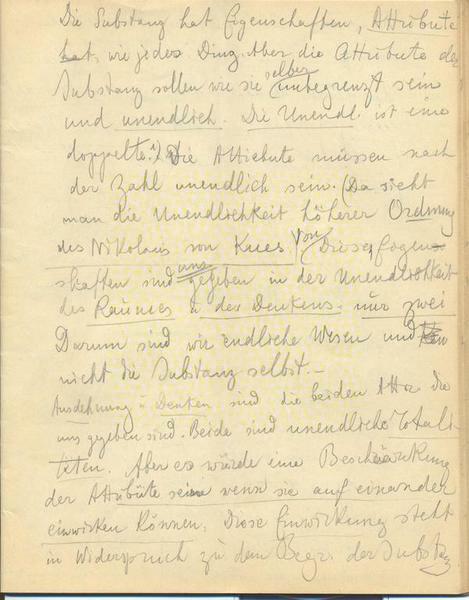 Die Substanz hat Eigenschaften, Attribute
hat, wie jedes Ding. Aber die Attribute der
Substanz sollen wie sie selber unbegrenzt sein
und unendlich. Die Unendl. ist eine
doppelte. 1) Die Attribute müssen nach
der Zahl unendlich sein. (Da sieht
man die Unendlichkeit höherer Ordnung
des Nikolaus von Kues) Von diesen Eigen-
schaften sind uns gegeben in der Unendlichkeit
des Raumes u der Denkens nur zwei
Darum sind wir endliche Wesen und
nicht die Substanz selbst. –
Ausdehnung u Denken sind die beiden Attr. die
uns gegeben sind. Beide sind unendliche Totali-
täten. Aber es würde eine Beschränkung
der Attribute sein wenn sie auf einander
einwirken können. Diese Einwirkung steht
in Widerspruch zu dem Begr. der Substanz